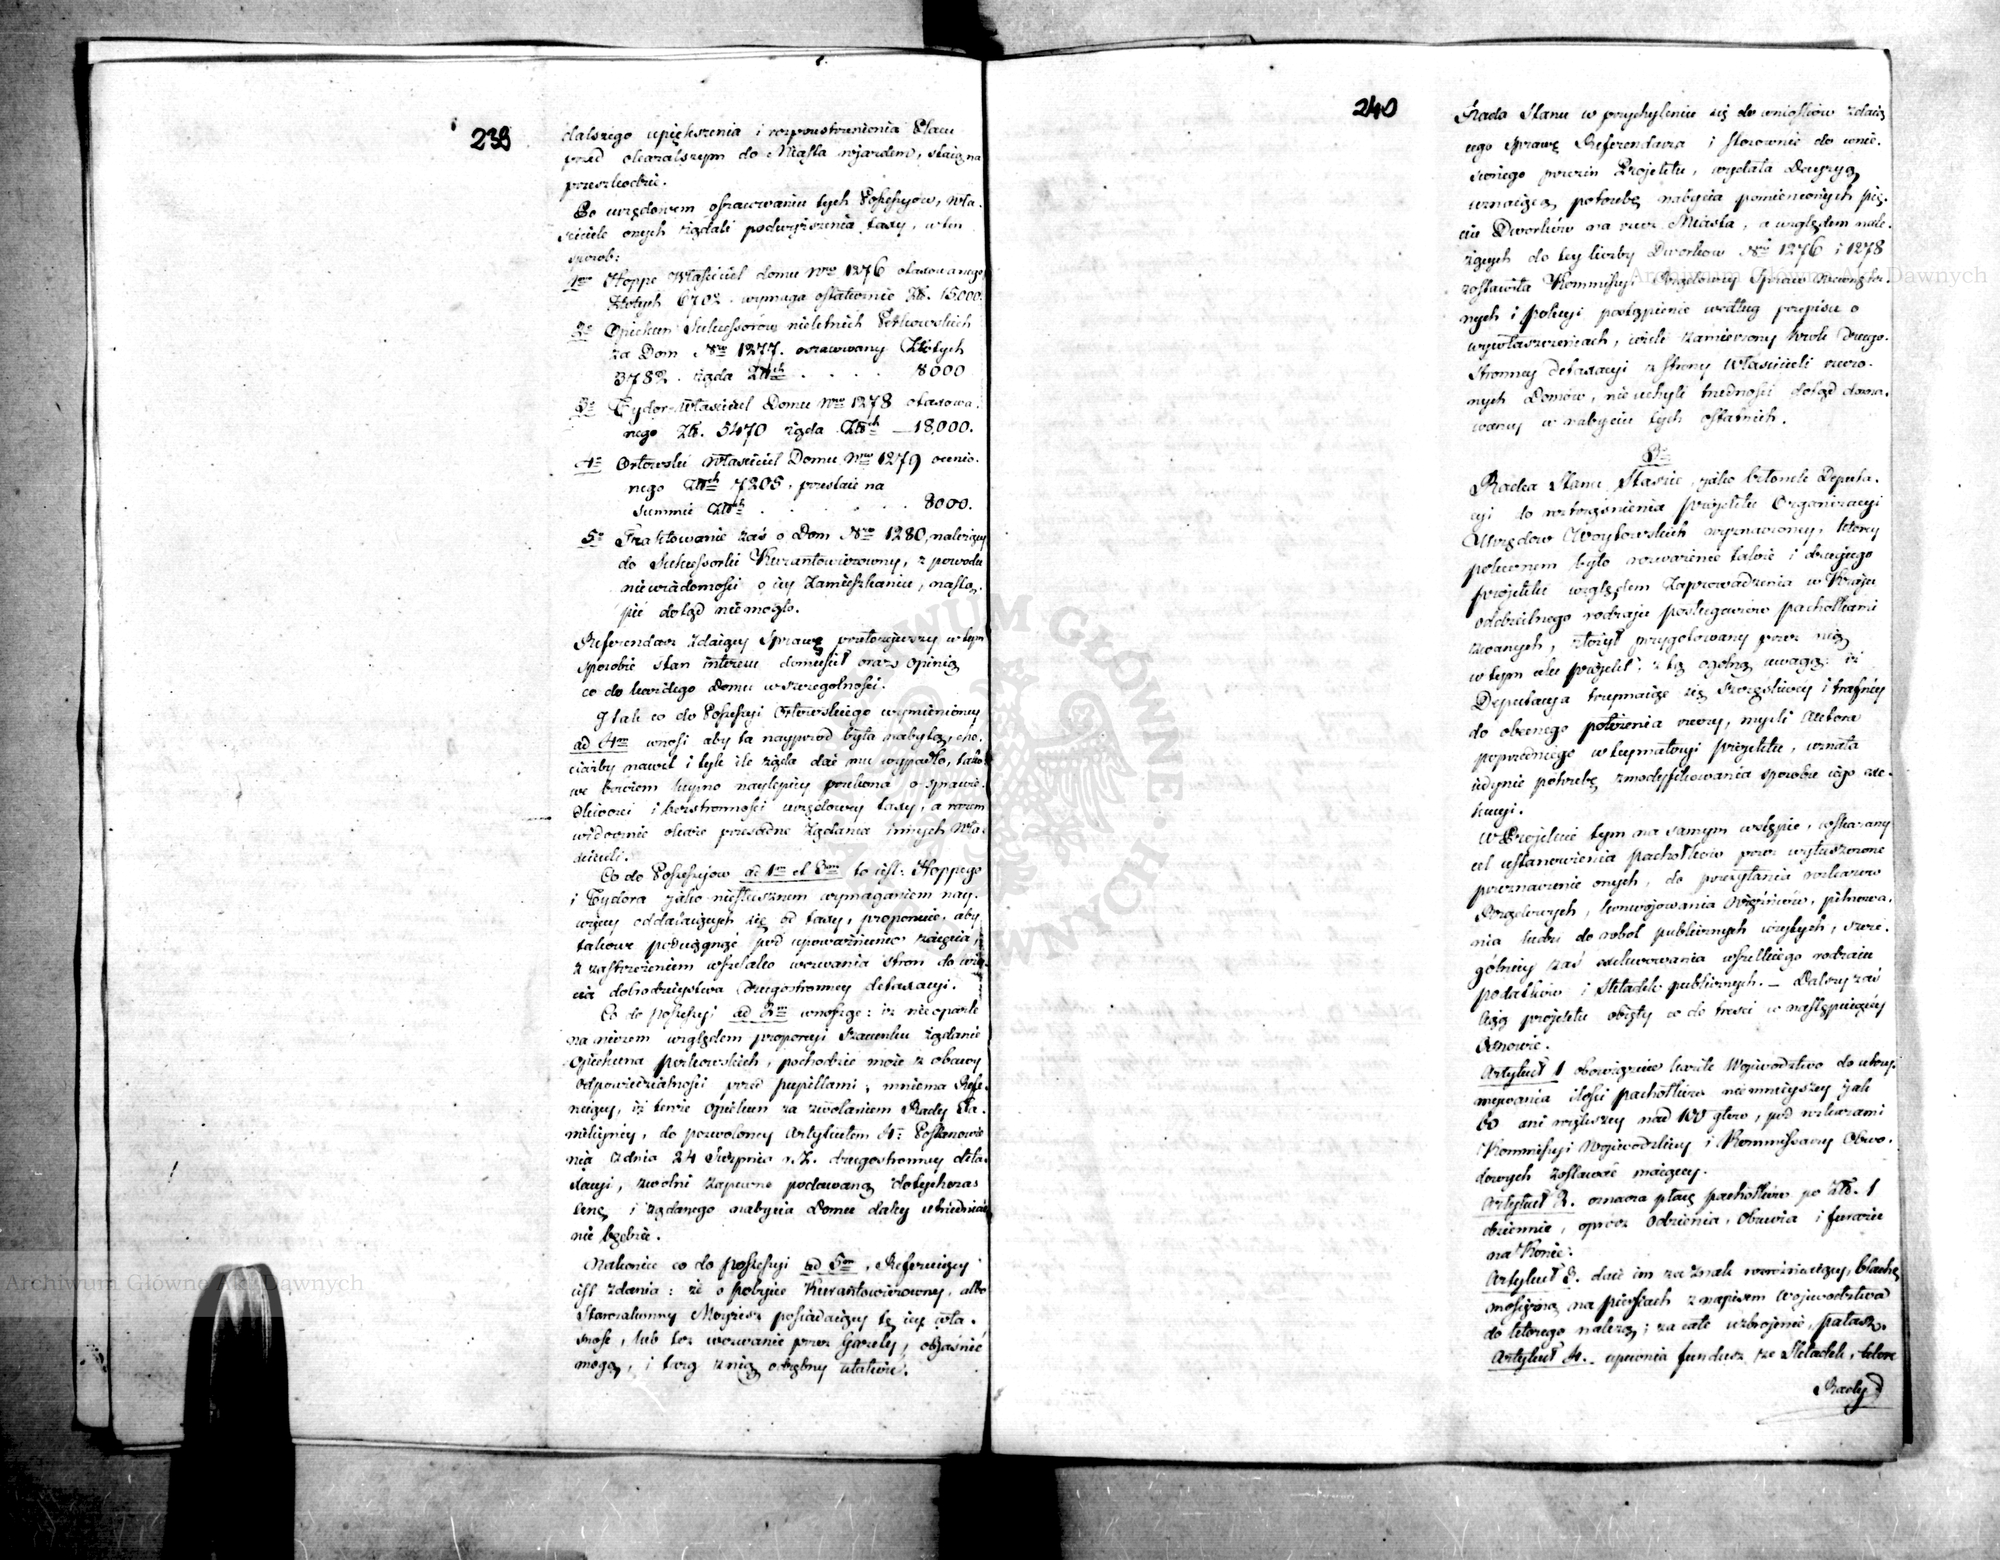 239
dalszego upiększenia i rozprzestrzenienia Placu
przed okazalszym do Miasta wjazdem, staią na
przeszkodzie.
Po urzędowem oszacowaniu tych Possessyów, Wła-
ściciele onych żądali podwyższenia taxy, w ten
sposób:
1mo Hoppe Właściciel domu Nro 1276 otaxowanego
Złotych 6702. wymaga ostatecznie Zł. 15,000.
2o Opiekun Sukcessorów nieletnich Petkowskich
za Dom Nro 1277. oszacowany Złotych
3782. żąda Złtch . . . . 8000
3o Tydor Właściciel Domu Nro 1278 otaxowa-
nego Zł. 5470 żąda Złtch — 18,000.
4o Orłowski Właściciel Domu Nro 1279 ocenio-
nego Złtch 7205. przestaie na
summie Złtch . . . . . . 8000.
5o Traktowanie zaś o Dom Nro 1280, należący
do Sukcessorki Kurantowiczowny, z powodu
niewiadomości o iey zamieszkaniu, nastą-
pić dotąd niemogło.
Referendarz zdaiący Sprawę, przełożywszy w tym
sposobie stan interesu domieścił oraz opinią
co do każdego Domu w szczegolności.
I tak co do Possessyi Orłowskiego wymienioney
ad 4um wnosi aby ta nayprzod była nabytą, cho-
ciażby nawet i tyle ile żąda dać mu wypadło, tako-
we bowiem kupno naylepiey przekona o sprawie-
dliwości i bezstronności urzędowey taxy, a razem
widocznie okaże przesadne żądania innych Wła-
ścicieli.
Co do Possessyow ad 1um et 3um to iest: Hoppego
i Tydora jako niesłusznem wymaganiem nay-
więcey oddalaiących się od taxy, proponuie, aby
takowe podciągnąć pod upoważnienie zaięcia,
z zastrzeżeniem wszelako wezwania stron do uży-
cia dobrodzieystwa drugostronney detaxacyi.
Co do possessyi ad 2um wnosząc: iż nieoparte
na niczem względem proporcyi szacunku żądanie
Opiekuna Petkowskich, pochodzić może z obawy
odpowiedzialności przed pupillami; mniema Refe-
ruiący, iż tenże Opiekun za zwołaniem Rady Fa-
miliyney, do pozwoloney Artykułem 4m Postanowie-
nia z dnia 24 Sierpnia r. z. drugostronney deta-
xacyi, zwolni zapewne podawaną dotychczas
cenę i żądanego nabycia Domu daley utrudniać
nie będzie.
Nakoniec co do possessyi ad 5um, Referuiący
iest zdania: że o pobycie Kurantowiczowny, albo
Starozakonny Moyżesz posiadaiący tę iey wła-
sność, lub też wezwanie przez Gazety, objaśnić
mogą, i targ z nią odrębny ułatwić.
240
Rada Stanu w przychyleniu się do wniosków zdaią-
cego sprawę Referendarza i stosownie do wnie-
sionego przezeń Projektu, wydała Decyzyą
uznaiącą potrzebę nabycia pomienionych pię-
ciu Dworków na rzecz Miasta, a względem nale-
żących do tey liczby Dworkow Nro 1276 i 1278
zostawiła Kommissyi Rządowey Spraw Wewnętrz-
nych i policyi postąpienie według przepisu o
wywłaszczeniach, ieżeli zamierzony krok drugo-
stronney detaxacyi z strony Właścicieli rzeczo-
nych Domów, nie uchyli trudności dotąd dozna-
waney w nabyciu tych ostatnich.
Radca Stanu Staszic, jako Członek Deputa-
cyi do roztrząśnienia projektu Organizacyi
Urzędów Woytowskich wyznaczoney, którey
poleconem było rozważenie także i drugiego
projektu względem zaprowadzenia w Kraju
oddzielnego rodzaju posługaczów pachołkami
zwanych, złożył przygotowany przez nią
w tym celu projekt: z tą ogolną uwagą: iż
Deputacya trzymaiąc się szczęśliwey i trafney
do obecnego położenia rzeczy, myśli Autora
poprzedniego w tey materyi projektu, uznała
iedynie potrzebę zmodyfikowania sposobu iego exe-
kucyi.
W Projekcie tym na samym wstępie, wskazany
cel ustanowienia pachołków przez wyłuszczone
przeznaczenie onych, do przesyłania rozkazow
Rządowych, konwojowania Więźniów, pilnowa-
nia ludzi do robot publicznych użytych, szcze-
gólniey zaś exekwowania wszelkiego rodzaiu
podatków i składek publicznych. — Dalszy zaś
ciąg projektu obięty co do treści w następuiącey
Osnowie.
Artykuł 1 obowiązuie każde Województwo do utrzy-
mywania ilości pachołków niemnieyszey jak
60 ani większey nad 100 głow, pod rozkazami
Kommissyi Wojewódzkiey i Kommissarzy Obwo-
dowych zostawać maiącey.
Artykuł 2. oznacza płacę pachołków po Zł. 1
dziennie, oprócz Odzienia, Obuwia i furażu
na Konie.
Artykuł 3. daie im za znak rozrożniaiący, blachę
mosiężną na piersiach z napisem Województwa
do ktorego należą; za całe uzbrojenie, pałasz.
Artykuł 4. upewnia fundusz ze Składek, które
Rady